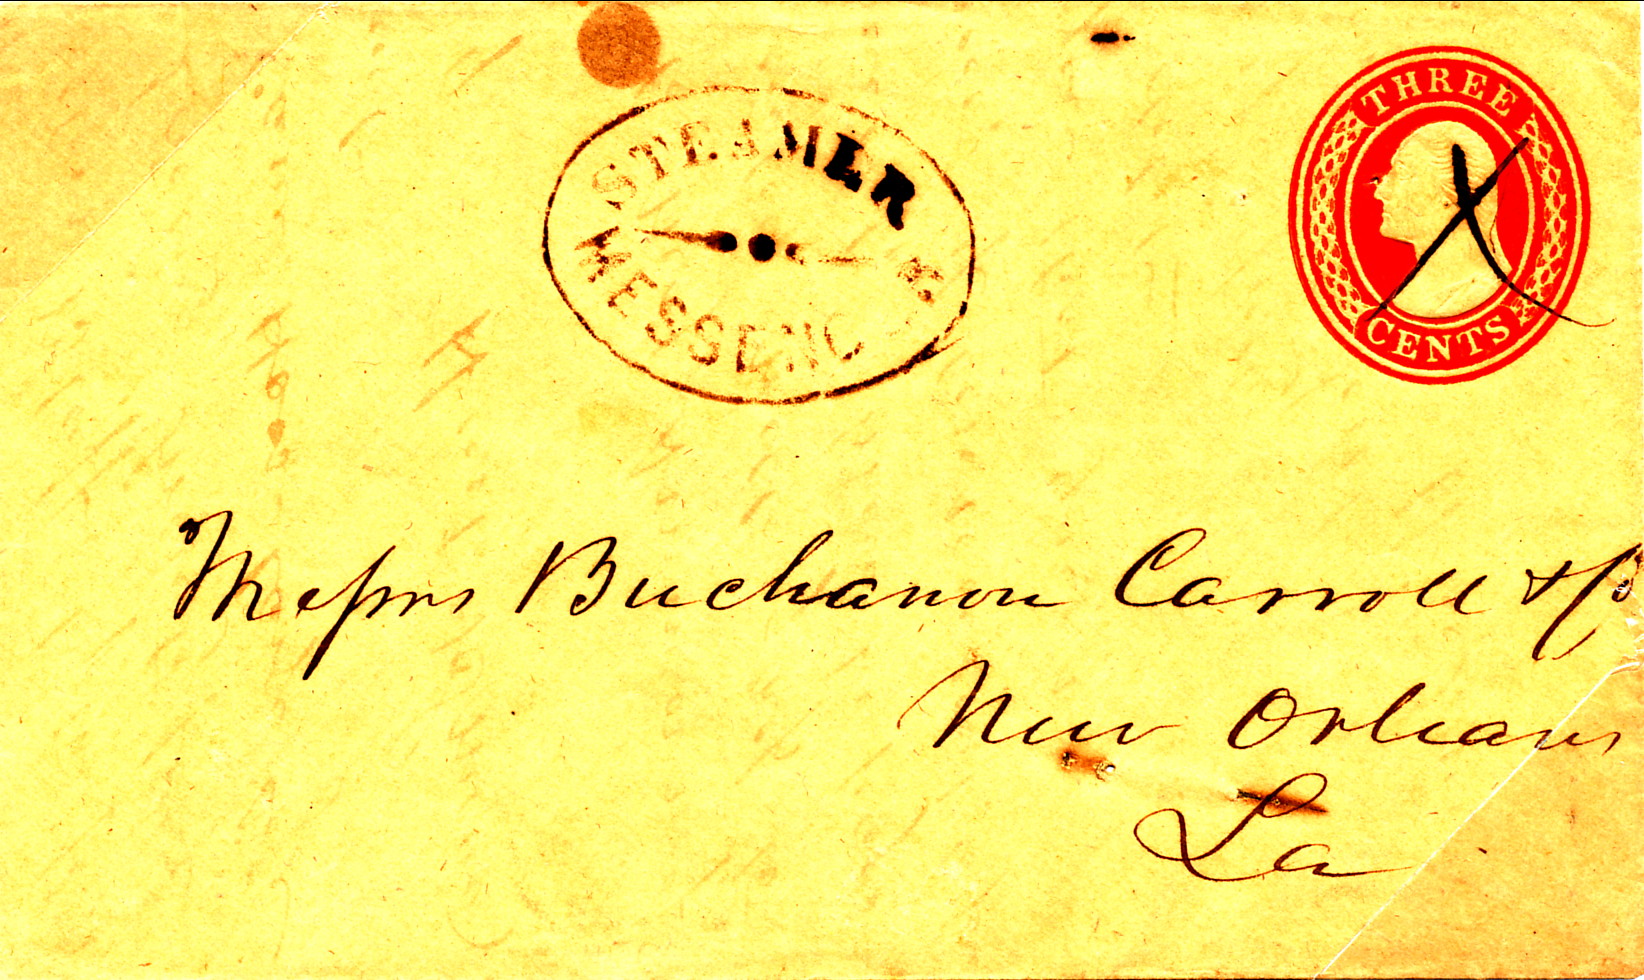 STEAMER
MESSENG
THREE
CENTS
Messrs Buchanon Carroll & Co
New Orleans
La